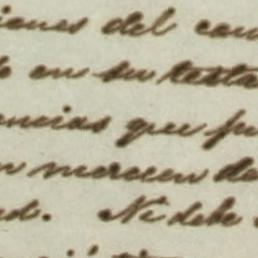 iones del con
o en su testa
encias que pu
n merecen de
ad. Ni debe